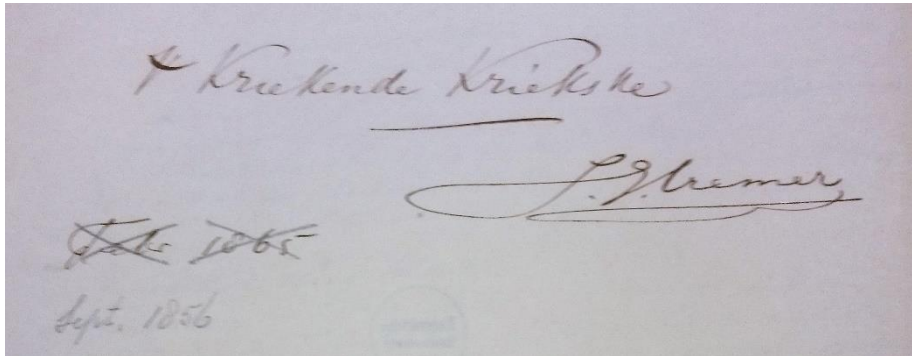 't Kriekende Kriekske
J. J. Cremer
1865
Sept. 1856